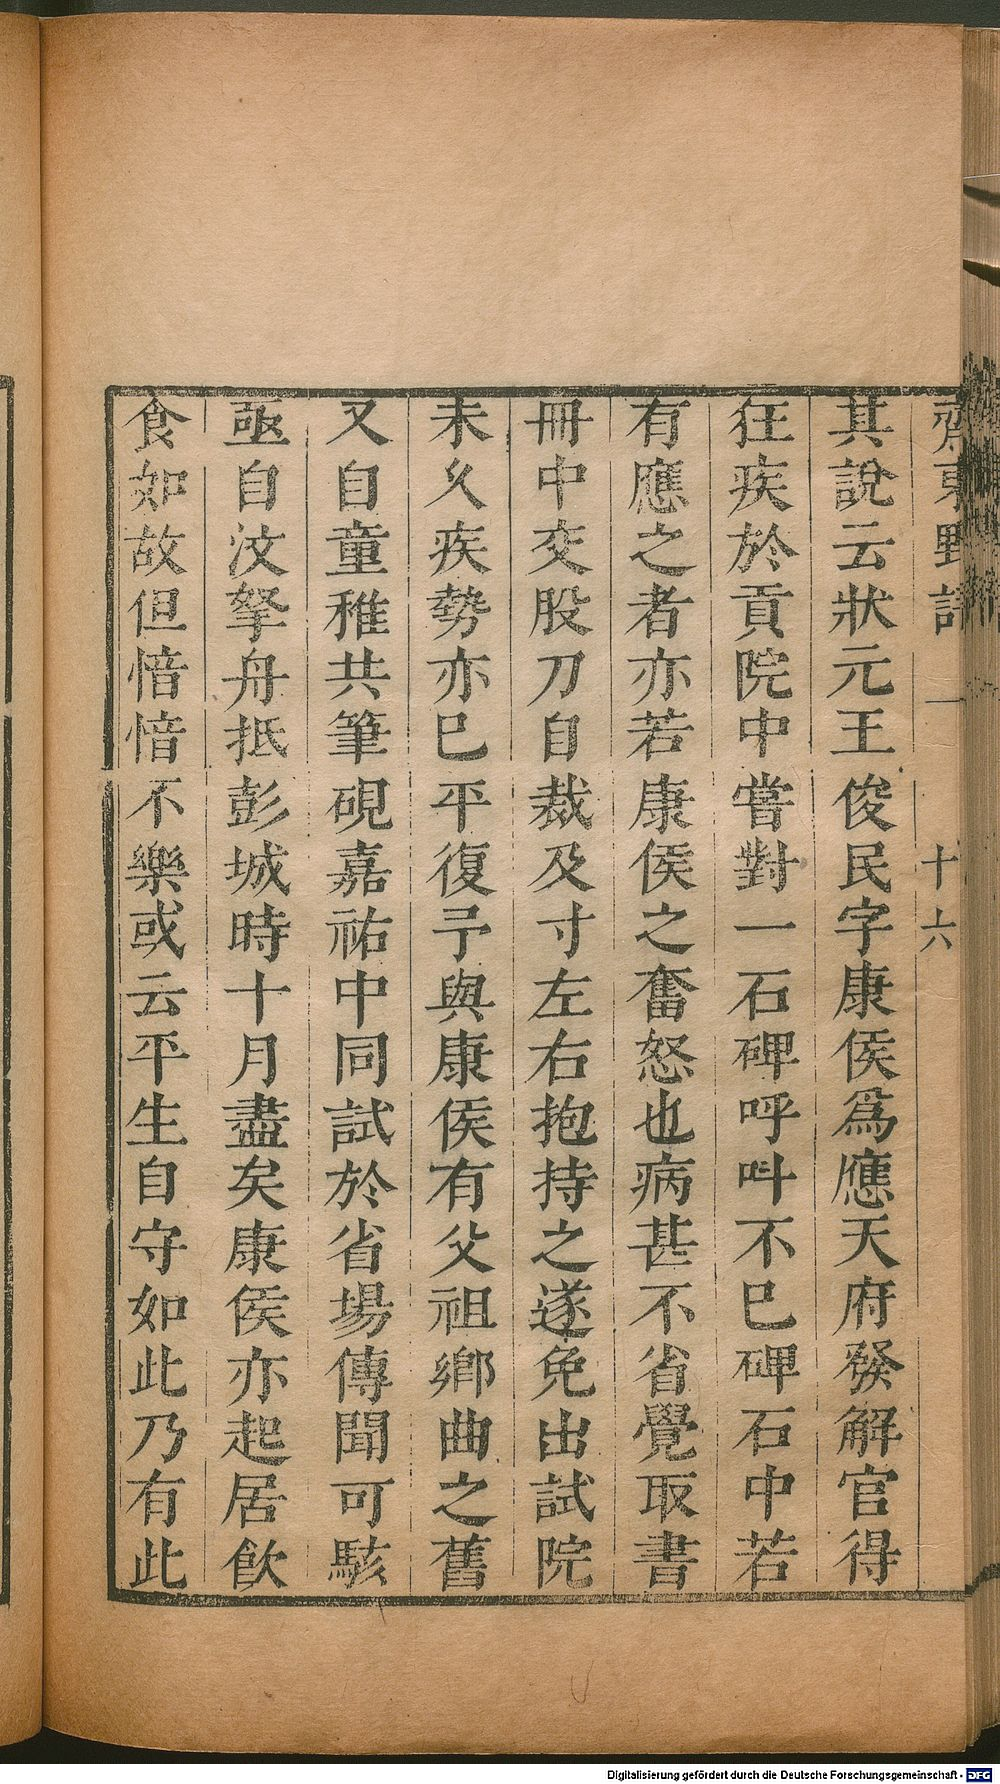 齊東野語 一 十六
其說云狀元王俊民字康侯爲應天府發解官得
狂疾於貢院中嘗對一石碑呼叫不已碑石中若
有應之者亦若康侯之奮怒也病甚不省覺取書
冊中交股刀自裁及寸左右抱持之遂免出試院
未久疾勢亦已平復予與康侯有父祖鄉曲之舊
又自童稚共筆硯嘉祐中同試於省場傳聞可駭
亟自汶拏舟抵彭城時十月盡矣康侯亦起居飲
食如故但愔愔不樂或云平生自守如此乃有此
Digitalisierung gefördert durch die Deutsche Forschungsgemeinschaft - DFG